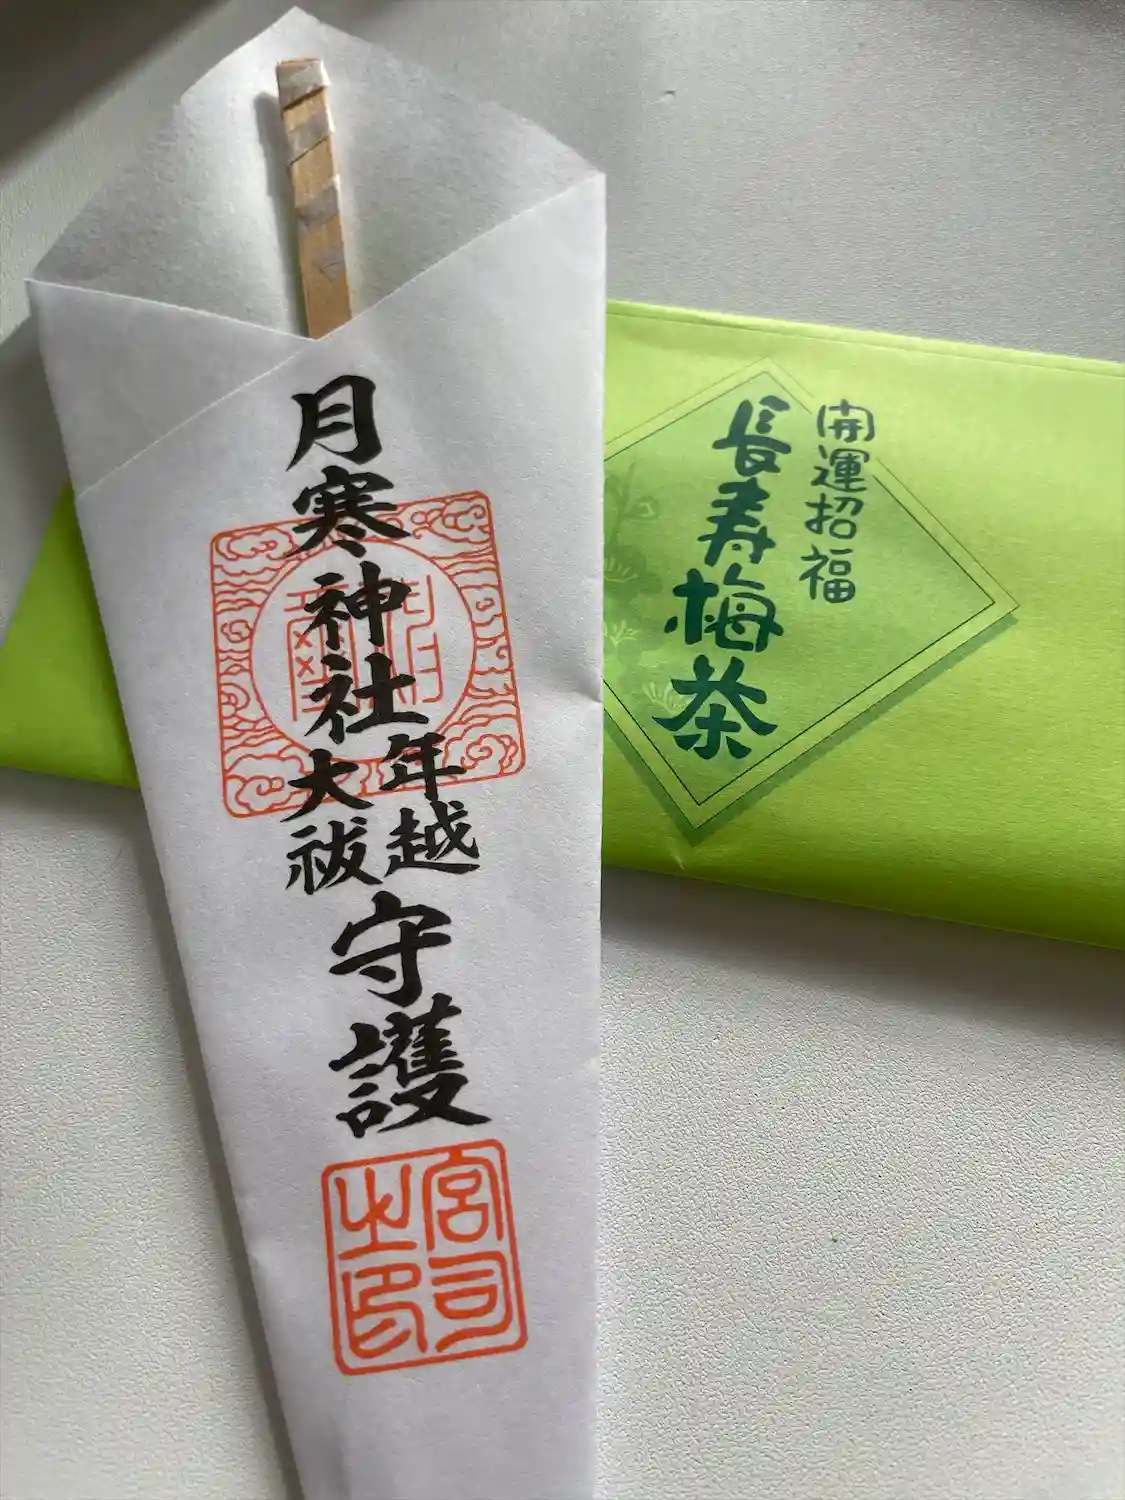 月寒神社
年越
大祓
守護
宮司
之印
開運招福
長寿梅茶